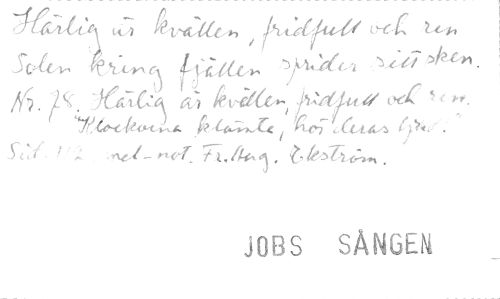 Härlig är kvällen, fridfull och ren
Solen kring fjällen sprider sitt sken.
Nr. 78. Härlig är kvällen, fridfull och ren.
"Klockorna klämta, hör deras ljud."
Sid. 112 mel-not. Fr. Aug. Ekström.
JOBS SÅNGEN